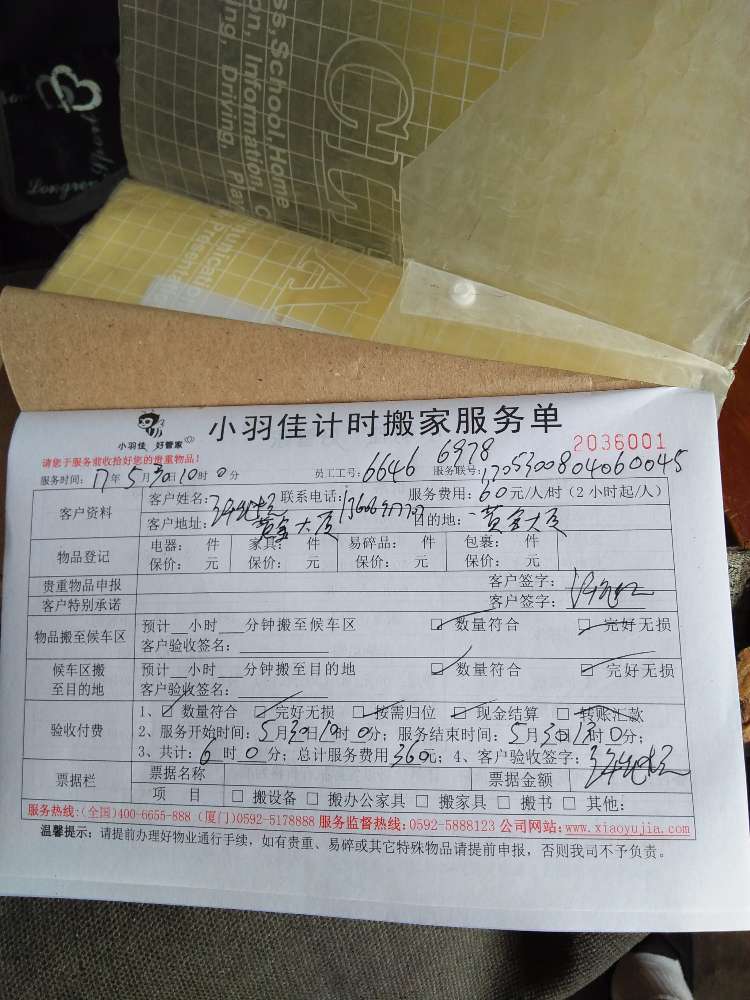 ss,School,Home
gn, Information, C
ing, Driving, Play
CITLA
munication
Presentati
Longren
小羽佳 好管家
小羽佳计时搬家服务单
2036001
请您于服务前收拾好您的贵重物品!
6978
服务时间: 17年5月30日10时0分 员工工号: 6646 服务联号: 1705300804060045
客户资料 客户姓名: 联系电话: 服务费用: 60元/人/时(2小时起/人)
客户地址: 黄金大厦 目的地: 黄金大厦
物品登记 电器: 件 家具: 件 易碎品: 件 包裹: 件
保价: 元 保价: 元 保价: 元 保价: 元
贵重物品申报 客户签字:
客户特别承诺 客户签字:
物品搬至候车区 预计__小时___分钟搬至候车区 ☑ 数量符合 ☑ 完好无损
客户验收签名:
候车区搬至目的地 预计__小时___分钟搬至目的地 ☑ 数量符合 ☑ 完好无损
客户验收签名:
验收付费 1、☑ 数量符合 ☑ 完好无损 ☑ 按需归位 ☑ 现金结算 ☐ 转账汇款
2、服务开始时间: 5月30日10时0分; 服务结束时间: 5月30日13时0分;
3、共计: 6时0分; 总计服务费用360元; 4、客户验收签字:
票据栏 票据名称 票据金额
项 目 ☐ 搬设备 ☐ 搬办公家具 ☐ 搬家具 ☐ 搬书 ☐ 其他:
服务热线:(全国)400-6655-888 (厦门)0592-5178888 服务监督热线:0592-5888123 公司网站:www.xiaoyujia.com
温馨提示: 请提前办理好物业通行手续, 如有贵重、易碎或其它特殊物品请提前申报, 否则我司不予负责。